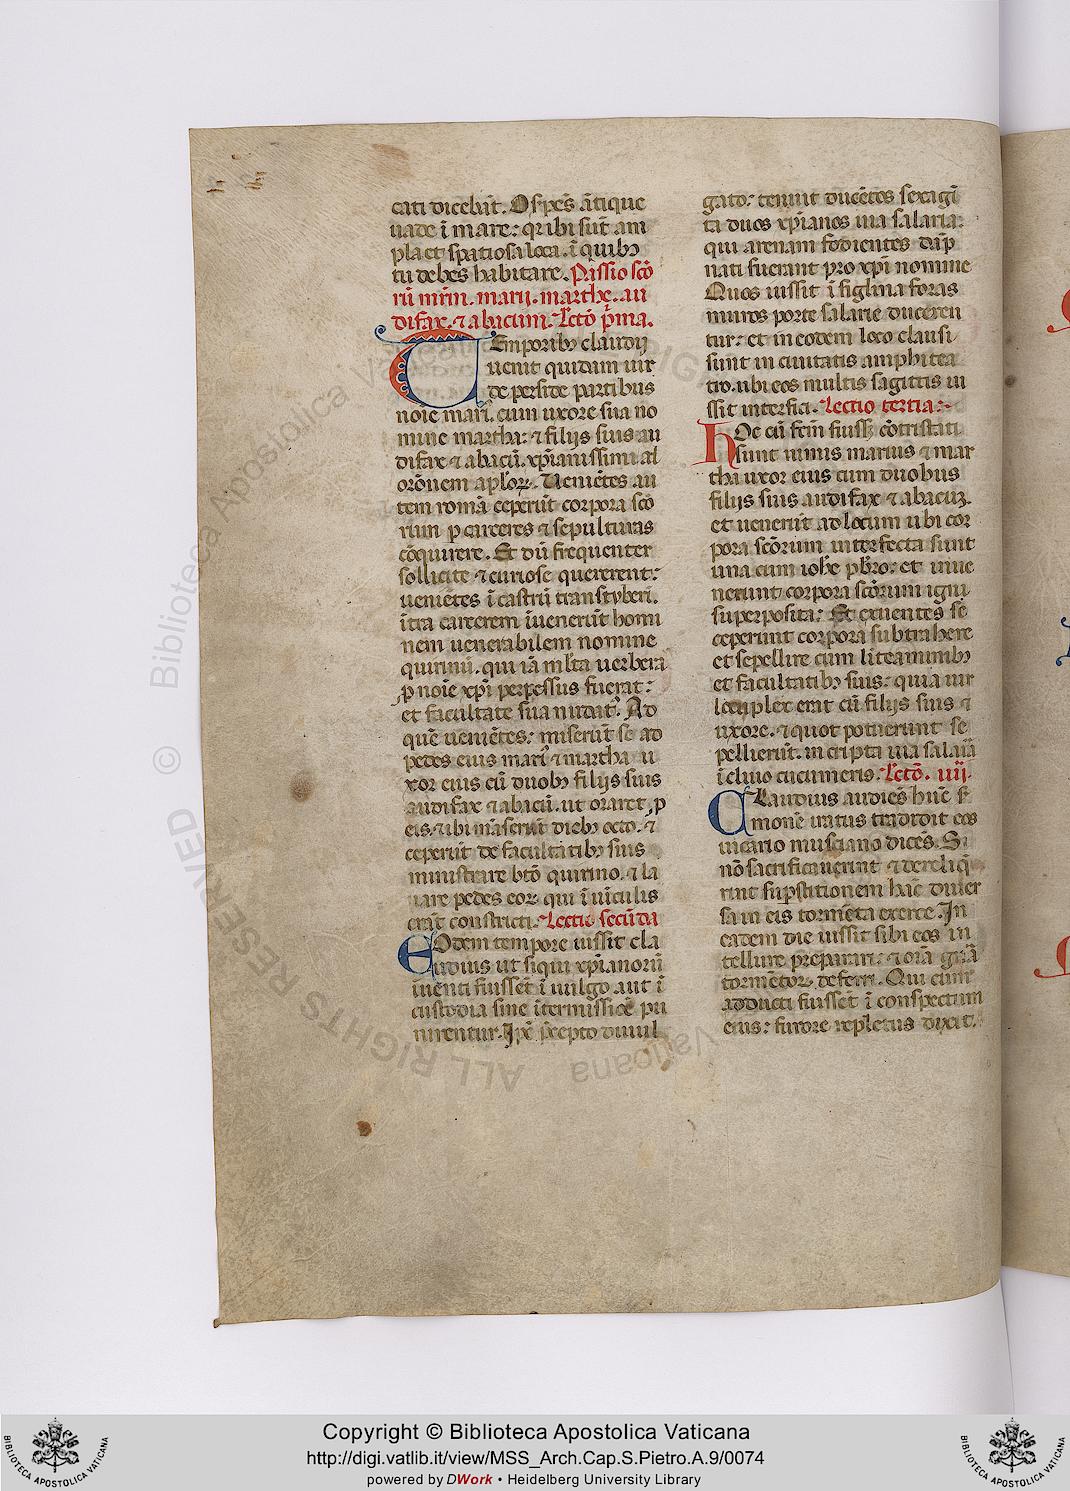 cati dicebāt. O spes ātique
uade ī mare: qr ibi sūt am
pla et spatiosa loca. ī quibꝫ
tu debes habitare. Passio scō
rū mrm. marij. marthe. au
difax. ⁊ abacum. Lectō prima.
Temporibꝫ claudij
uenit quidam uir
de perside partibus
noīe mari9. cum uxore sua no
mine martha: ⁊ filijs suis au
difax ⁊ abacū. xp̄ianissimi al
orōnem aplorꝝ. Ueniētes au
tem romā ceperūt corpora scō
rum ꝑ carceres ⁊ sepulturas
cōquirere. Et dū frequenter
sollicite ⁊ curiose quererent:
ueniētes ī castrū transtyberi.
ītra carcerem īuenerūt homi
nem uenerabilem nomine
quirinū. qui iā ml̄ta uerbera
ꝓ noīe xp̄i perpessus fuerat:
et facultate sua nudat9. Ad
quē ueniētes: miserūt se ad
pedes eius mari9 ⁊ martha u
xor eius cū duobꝫ filijs suis
audifax ⁊ abacū. ut oraret ꝓ
eis. ⁊ ibi māserūt diebꝫ octo. ⁊
ceperūt de facultatibꝫ suis
ministrare btō quirino. ⁊ la
uare pedes eoꝝ qui ī uīculis
erāt constricti. Lectio secūda
Eodem tempore iussit cla
udius ut siqui xp̄ianorū
īuenti fuissēt ī uulgo aut ī
custodia sine ītermissiōe pu
nirentur. Ip̄e p̄cepto diuul
gato: tenuit ducētos sexagī
ta duos xp̄ianos uia salaria:
qui arenam fodientes dāp
nati fuerant pro xp̄i nomine
Quos iussit ī figlina foras
muros porte salarie duceren
tur: et in eodem loco clausi
sunt in ciuitatis amphitea
tro. ubi eos multis sagittis iu
ssit interfici. Lectio tertia:
Hoc cū fcm̄ fuiss; cōtristati
sunt nimis marius ⁊ mar
tha uxor eius cum duobus
filijs suis audifax ⁊ abacuꝫ.
et uenerūt ad locum ubi cor
pora scōrum interfecta sunt
una cum ioh̄e pb̄ro: et inue
nerunt corpora scōrum igni
superposita: Et exuentes se
ceperunt corpora subtrahere
et sepellire cum liteaminibꝫ
et facultatibꝫ suis: quia uir
locuplex erat cū filijs suis ⁊
uxore. ⁊ quot potuerunt se
pellierūt. in cripta uia salaīa
ī cliuo cucumeris. Lectō. iiij.
Claudius audiēs hūc s̄
monē iratus tradidit eos
uicario musciano dicēs. Si
nō sacrificauerint ⁊ derelīq̄
rint suꝑstitionem hāc diuer
sa in eis tormēta exerce. In
eadem die iussit sibi eos in
tellure preparari: ⁊ oīa gnā
tormētoꝝ deferri. Qui cum
adducti fuissēt ī conspectum
eius: furore repletus dixit.
© Biblioteca Apostolica Vaticana
ALL RIGHTS RESERVED
Copyright © Biblioteca Apostolica Vaticana
http://digi.vatlib.it/view/MSS_Arch.Cap.S.Pietro.A.9/0074
powered by DWork • Heidelberg University Library
BIBLIOTECA APOSTOLICA VATICANA
BIBLIOTECA APOSTOLICA VATICANA